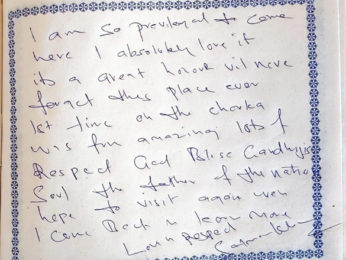 I am so prevleged to come
here I absolutely love it
its a great honour vil neve
forget this place ever
1st time on the charka
was fun amazing lots of
Respect God Bliss Gandhijis
Soul the father of the nation
hope to visit again when
I come Back n learn more
Love n Respect